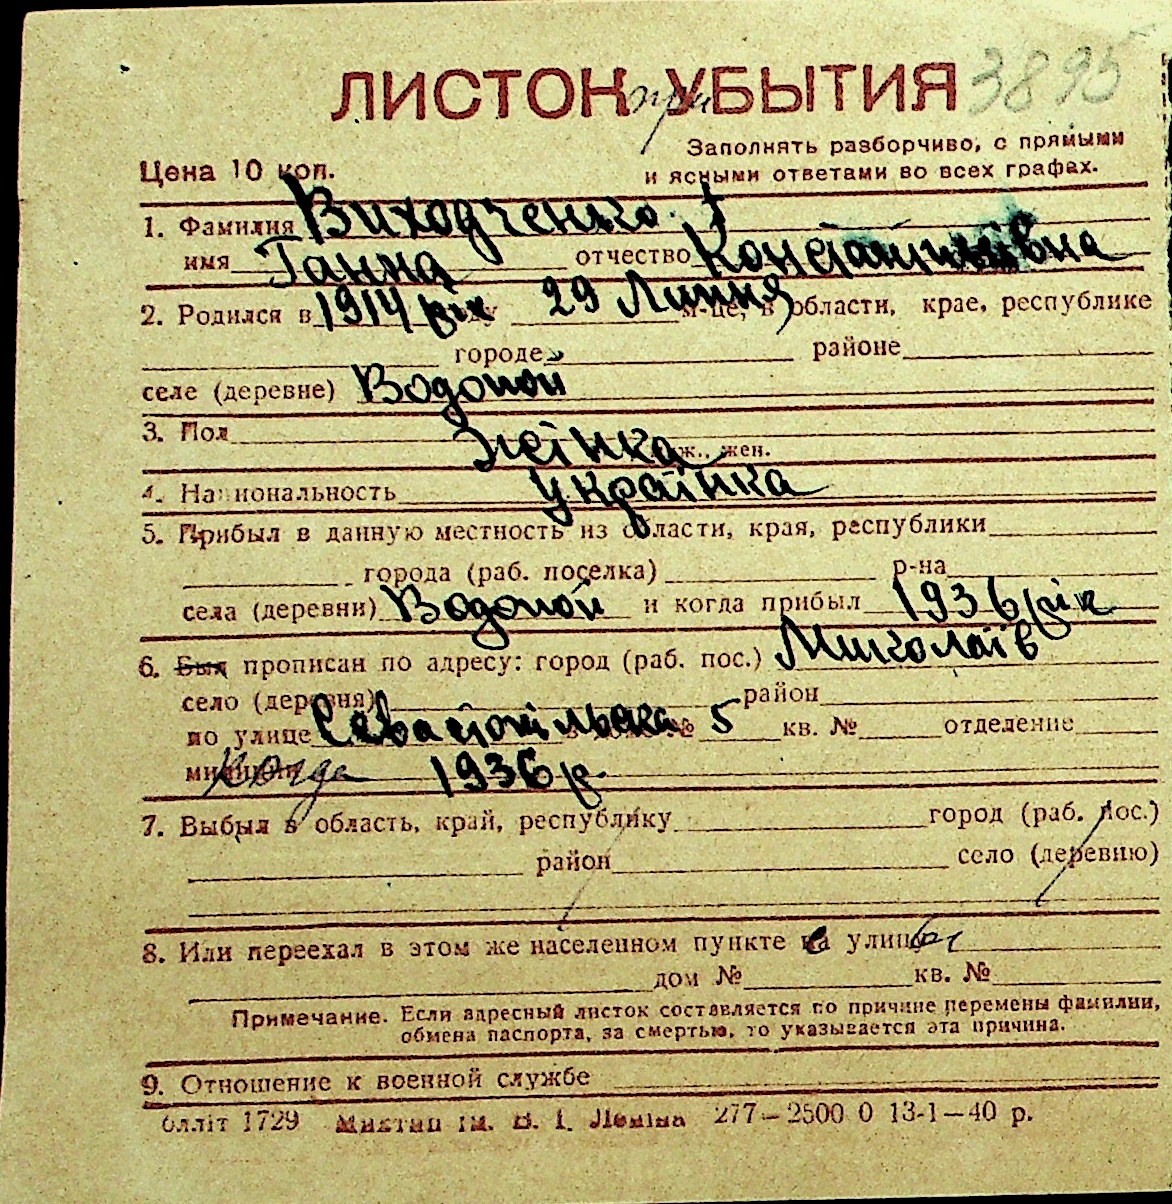 ЛИСТОК при УБЫТИЯ 3895
Заполнять разборчиво, с прямыми
Цена 10 коп. и ясными ответами во всех графах.
1. Фамилия Виходченко
имя Ганна отчество Констянтинівна
2. Родился в 1914 рік году 29 Липня м-це, в области, крае, республике
городе районе
селе (деревне) Водопой
3. Пол Жінка ж.. жен.
4. Национальность Українка
5. Прибыл в данную местность из области, края, республики
города (раб. поселка) р-на
села (деревни) Водопой и когда прибыл 1936 рік
6. Был прописан по адресу: город (раб. пос.) Миколаїв
село (деревня) район
по улице Севастопільська № 5 кв. № отделение
милиции Когда 1936 р.
7. Выбыл в область, край, республику город (раб. пос.)
район село (деревню)
8. Или переехал в этом же населенном пункте с улицы
дом № кв. №
Примечание. Если адресный листок составляется по причине перемены фамилии,
обмена паспорта, за смертью, то указывается эта причина.
9. Отношение к военной службе
блліт 1729 ім. В. І. Леніна 277—2500 0 13-1—40 р.